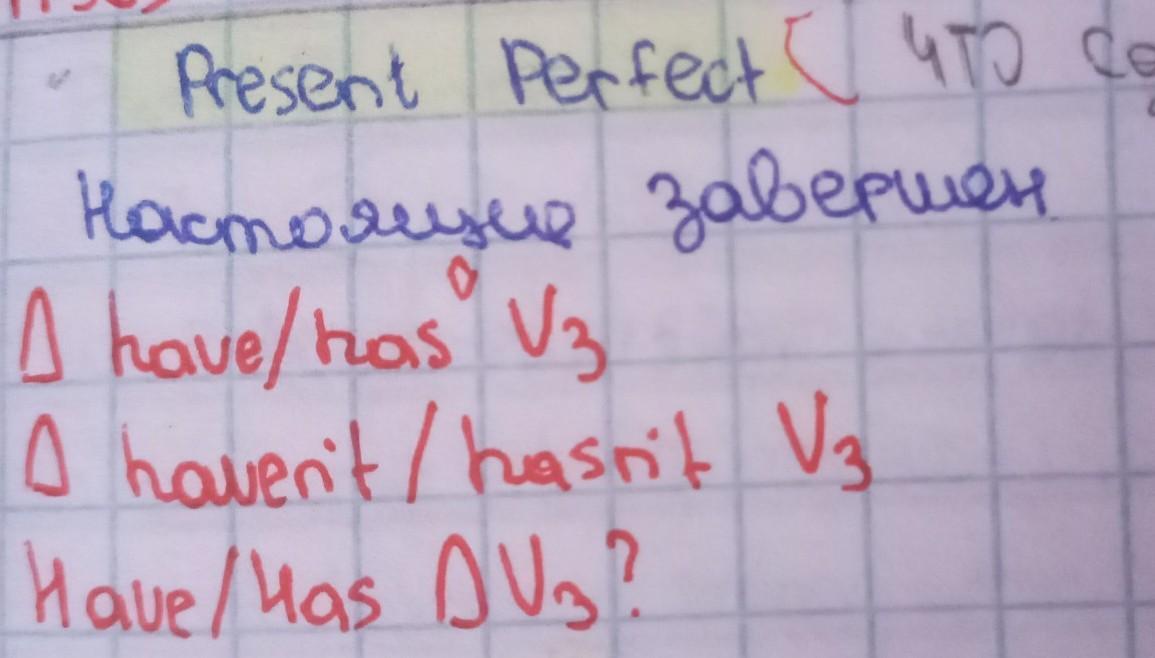 Present Perfect ( что
Настоящие завершен.
Δ have/has° V3
Δ haven't/hasn't V3
Have/Has Δ V3?